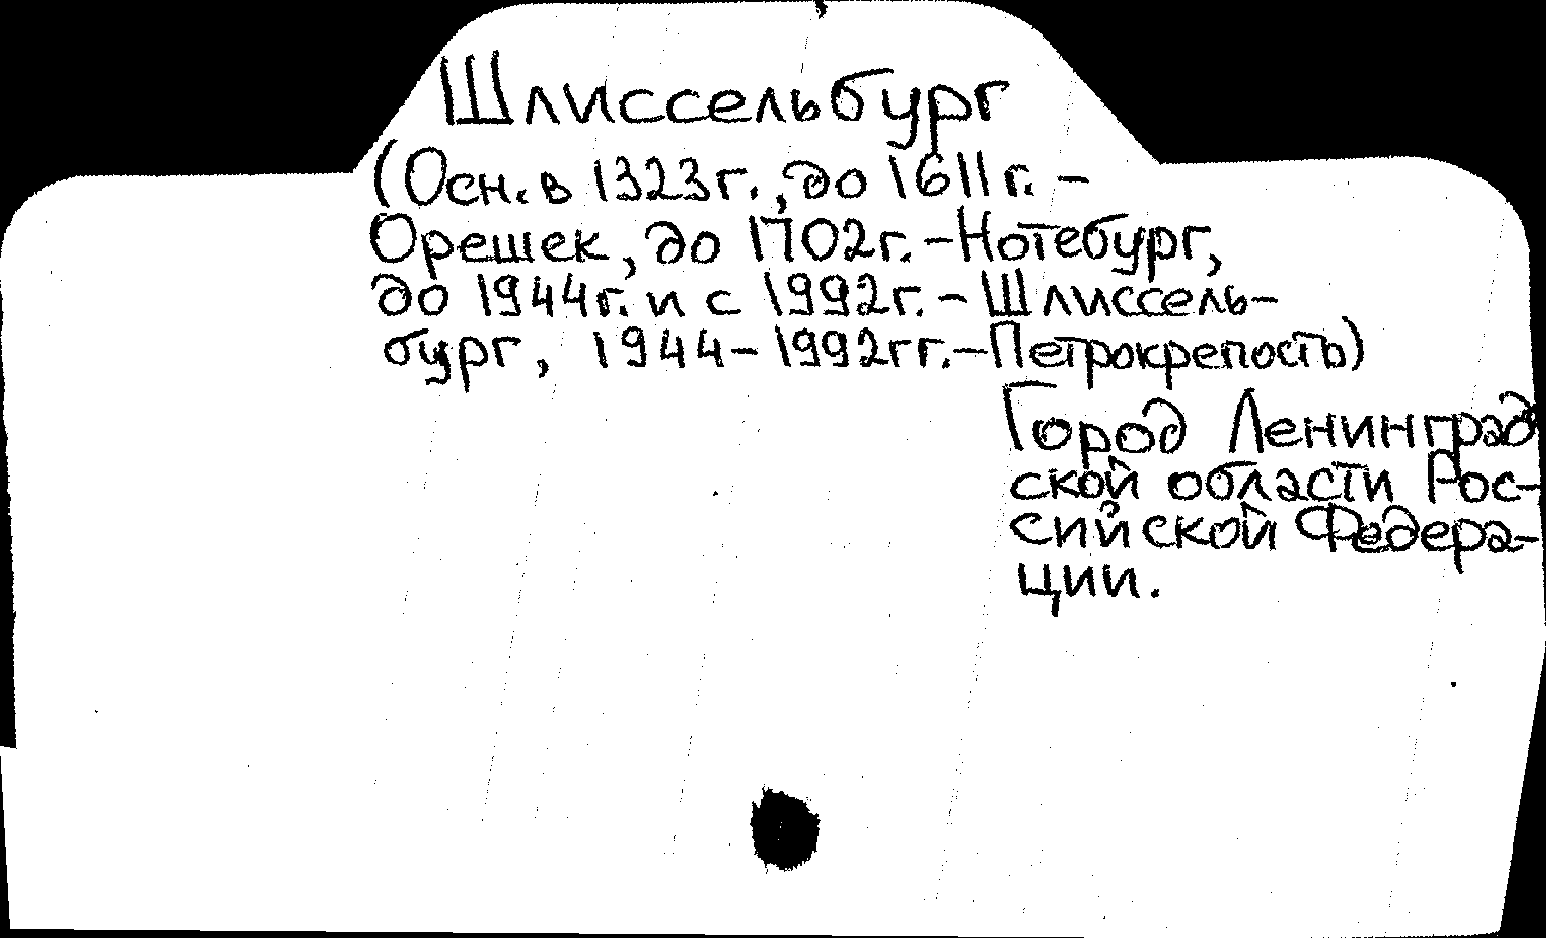 Шлиссельбург
(Осн. в 1323г., до 1611г. -
Орешек, до 1702г. - Нотебург,
до 1944г. и с 1992г. - Шлиссель-
бург, 1944-1992гг. - Петрокрепость)
Город Ленинград
ской области Рос-
сийской Федера-
ции.